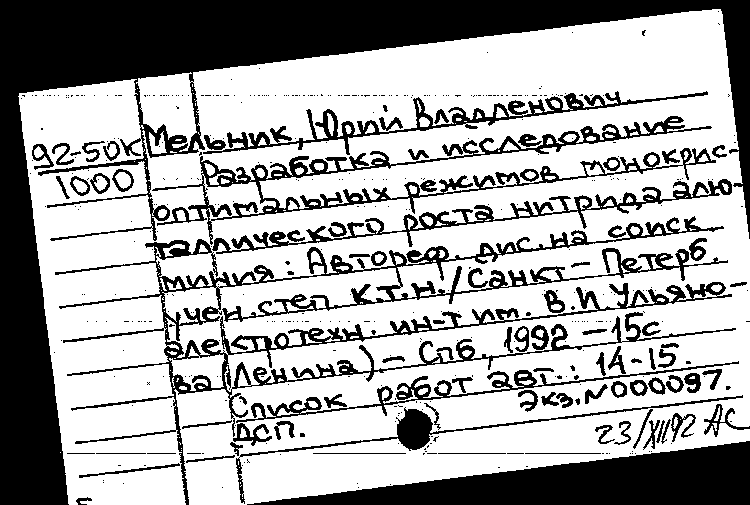 92-50к
1000
Мельник, Юрий Владленович.
Разработка и исследование
оптимальных режимов монокрис-
таллического роста нитрида алю-
миния: Автореф. дис. на соиск.
учен. степ. к.т.н./Санкт-Петерб.
электротехн. ин-т им. В.И Ульяно-
ва (Ленина).- Спб., 1992 -15с.
Список работ авт.: 14-15.
ДСП. Экз.№000097.
23/XII92 АС